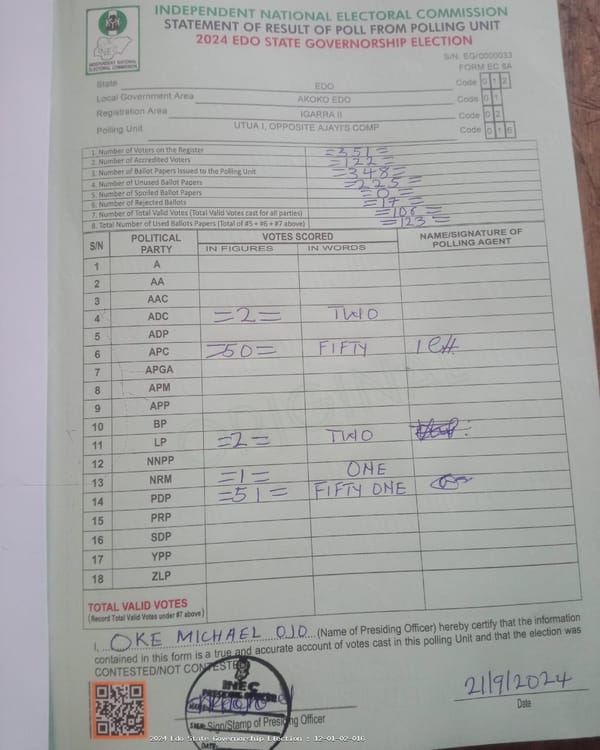 INDEPENDENT NATIONAL ELECTORAL COMMISSION
STATEMENT OF RESULT OF POLL FROM POLLING UNIT
2024 EDO STATE GOVERNORSHIP ELECTION
INEC
INDEPENDENT NATIONAL ELECTORAL COMMISSION
S/N: EG/0000033
FORM EC 8A
State EDO Code 0 1 2
Local Government Area AKOKO EDO Code 0 1
Registration Area IGARRA II Code 0 2
Polling Unit UTUA I, OPPOSITE AJAYI'S COMP Code 0 1 6
1. Number of Voters on the Register =351=
2. Number of Accredited Voters =122=
3. Number of Ballot Papers Issued to the Polling Unit =348=
4. Number of Unused Ballot Papers =225=
5. Number of Spoiled Ballot Papers =0=
6. Number of Rejected Ballots =17=
7. Number of Total Valid Votes (Total Valid Votes cast for all parties) =106=
8. Total Number of Used Ballots Papers (Total of #5 + #6 + #7 above) =123=
S/N POLITICAL PARTY VOTES SCORED NAME/SIGNATURE OF POLLING AGENT
IN FIGURES IN WORDS
1 A
2 AA
3 AAC
4 ADC =2= TWO
5 ADP
6 APC =50= FIFTY
7 APGA
8 APM
9 APP
10 BP
11 LP =2= TWO
12 NNPP
13 NRM =1= ONE
14 PDP =51= FIFTY ONE
15 PRP
16 SDP
17 YPP
18 ZLP
TOTAL VALID VOTES
(Record Total Valid Votes under #7 above)
I, OKE MICHAEL OJO (Name of Presiding Officer) hereby certify that the information
contained in this form is a true and accurate account of votes cast in this polling Unit and that the election was
CONTESTED/NOT CONTESTED
INEC
PRESIDING OFFICER
Sign/Stamp of Presiding Officer
DATE
21/9/2024
Date
2024 Edo State Governorship Election : 12-01-02-016